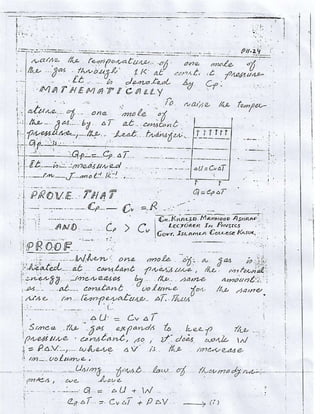 PH-24
raise the temperature of one mole of
the gas through 1K at const. pressure
It is denoted by Cp.
MATHEMATICALLY
To raise the temper-
ature of one mole of
the gas by ΔT at constant
pressure, the heat transfer
Qp is
Qp = Cp ΔT
It is measured
in J mol⁻¹ K⁻¹
ΔU = CvΔT
Q = CpΔT
PROVE THAT
Cp - Cv = R
AND Cp > Cv
KHALID MAHMOOD ASHRAF
LECTURER IN PHYSICS
GOVT. ISLAMIA COLLEGE
PROOF
When one mole of a gas is
heated at constant pressure, the internal
energy increases by the same amount
as at constant volume for the same
rise in temperature ΔT. Thus
ΔU = CvΔT
Since the gas expands to keep the
pressure constant, so, it does work W
= PΔV, where ΔV is the increase
in volume.
Using first law of thermodyna-
mics, we have
Q = ΔU + W
CpΔT = CvΔT + PΔV → (1)